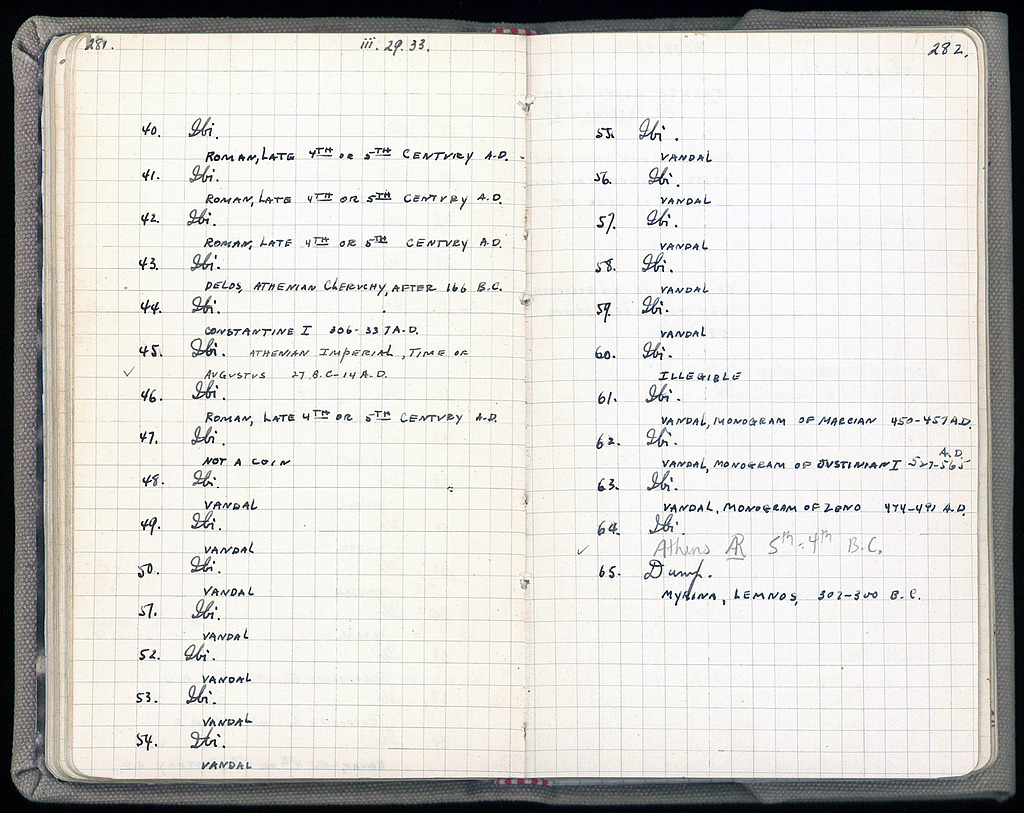 281.
iii. 29. 33.
40. Ibi.
ROMAN, LATE 4TH OR 5TH CENTVRY A.D.
41. Ibi.
ROMAN, LATE 4TH OR 5TH CENTVRY A.D.
42. Ibi.
ROMAN, LATE 4TH OR 5TH CENTVRY A.D.
43. Ibi.
DELOS, ATHENIAN CLERVCHY, AFTER 166 B.C.
44. Ibi.
CONSTANTINE I 306-337 A.D.
45. Ibi. ATHENIAN IMPERIAL, TIME OF
✓ AVGVSTVS 27 B.C-14 A.D.
46. Ibi.
ROMAN, LATE 4TH OR 5TH CENTVRY A.D.
47. Ibi.
NOT A COIN
48. Ibi.
VANDAL
49. Ibi.
VANDAL
50. Ibi.
VANDAL
51. Ibi.
VANDAL
52. Ibi.
VANDAL
53. Ibi.
VANDAL
54. Ibi.
VANDAL
282.
55. Ibi.
VANDAL
56. Ibi.
VANDAL
57. Ibi.
VANDAL
58. Ibi.
VANDAL
59. Ibi.
VANDAL
60. Ibi.
ILLEGIBLE
61. Ibi.
VANDAL, MONOGRAM OF MARCIAN 450-457 A.D.
62. Ibi.
VANDAL, MONOGRAM OF JVSTINIAN I 527-565 A.D.
63. Ibi.
VANDAL, MONOGRAM OF ZENO 474-491 A.D.
64. Ibi.
✓ Athens AR 5th-4th B.C.
65. Dump.
MYRINA, LEMNOS, 302-300 B.C.